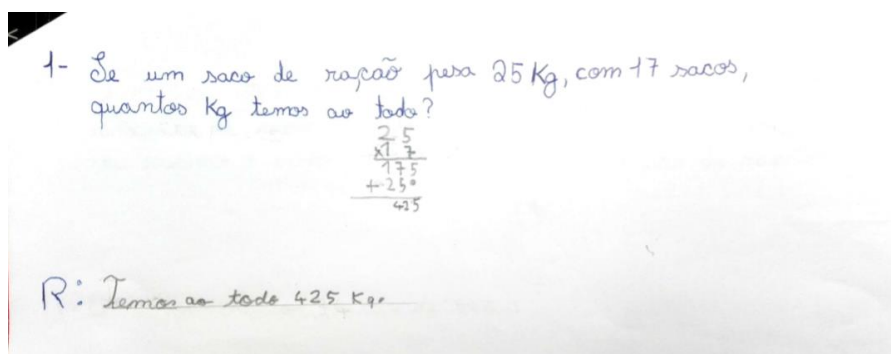 1- Se um saco de ração pesa 25 Kg, com 17 sacos,
quantos Kg temos ao todo?
25
x17
175
+25°
425
R: Temos ao todo 425 Kg.